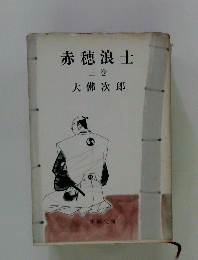 赤穂浪士
上巻
大佛次郎